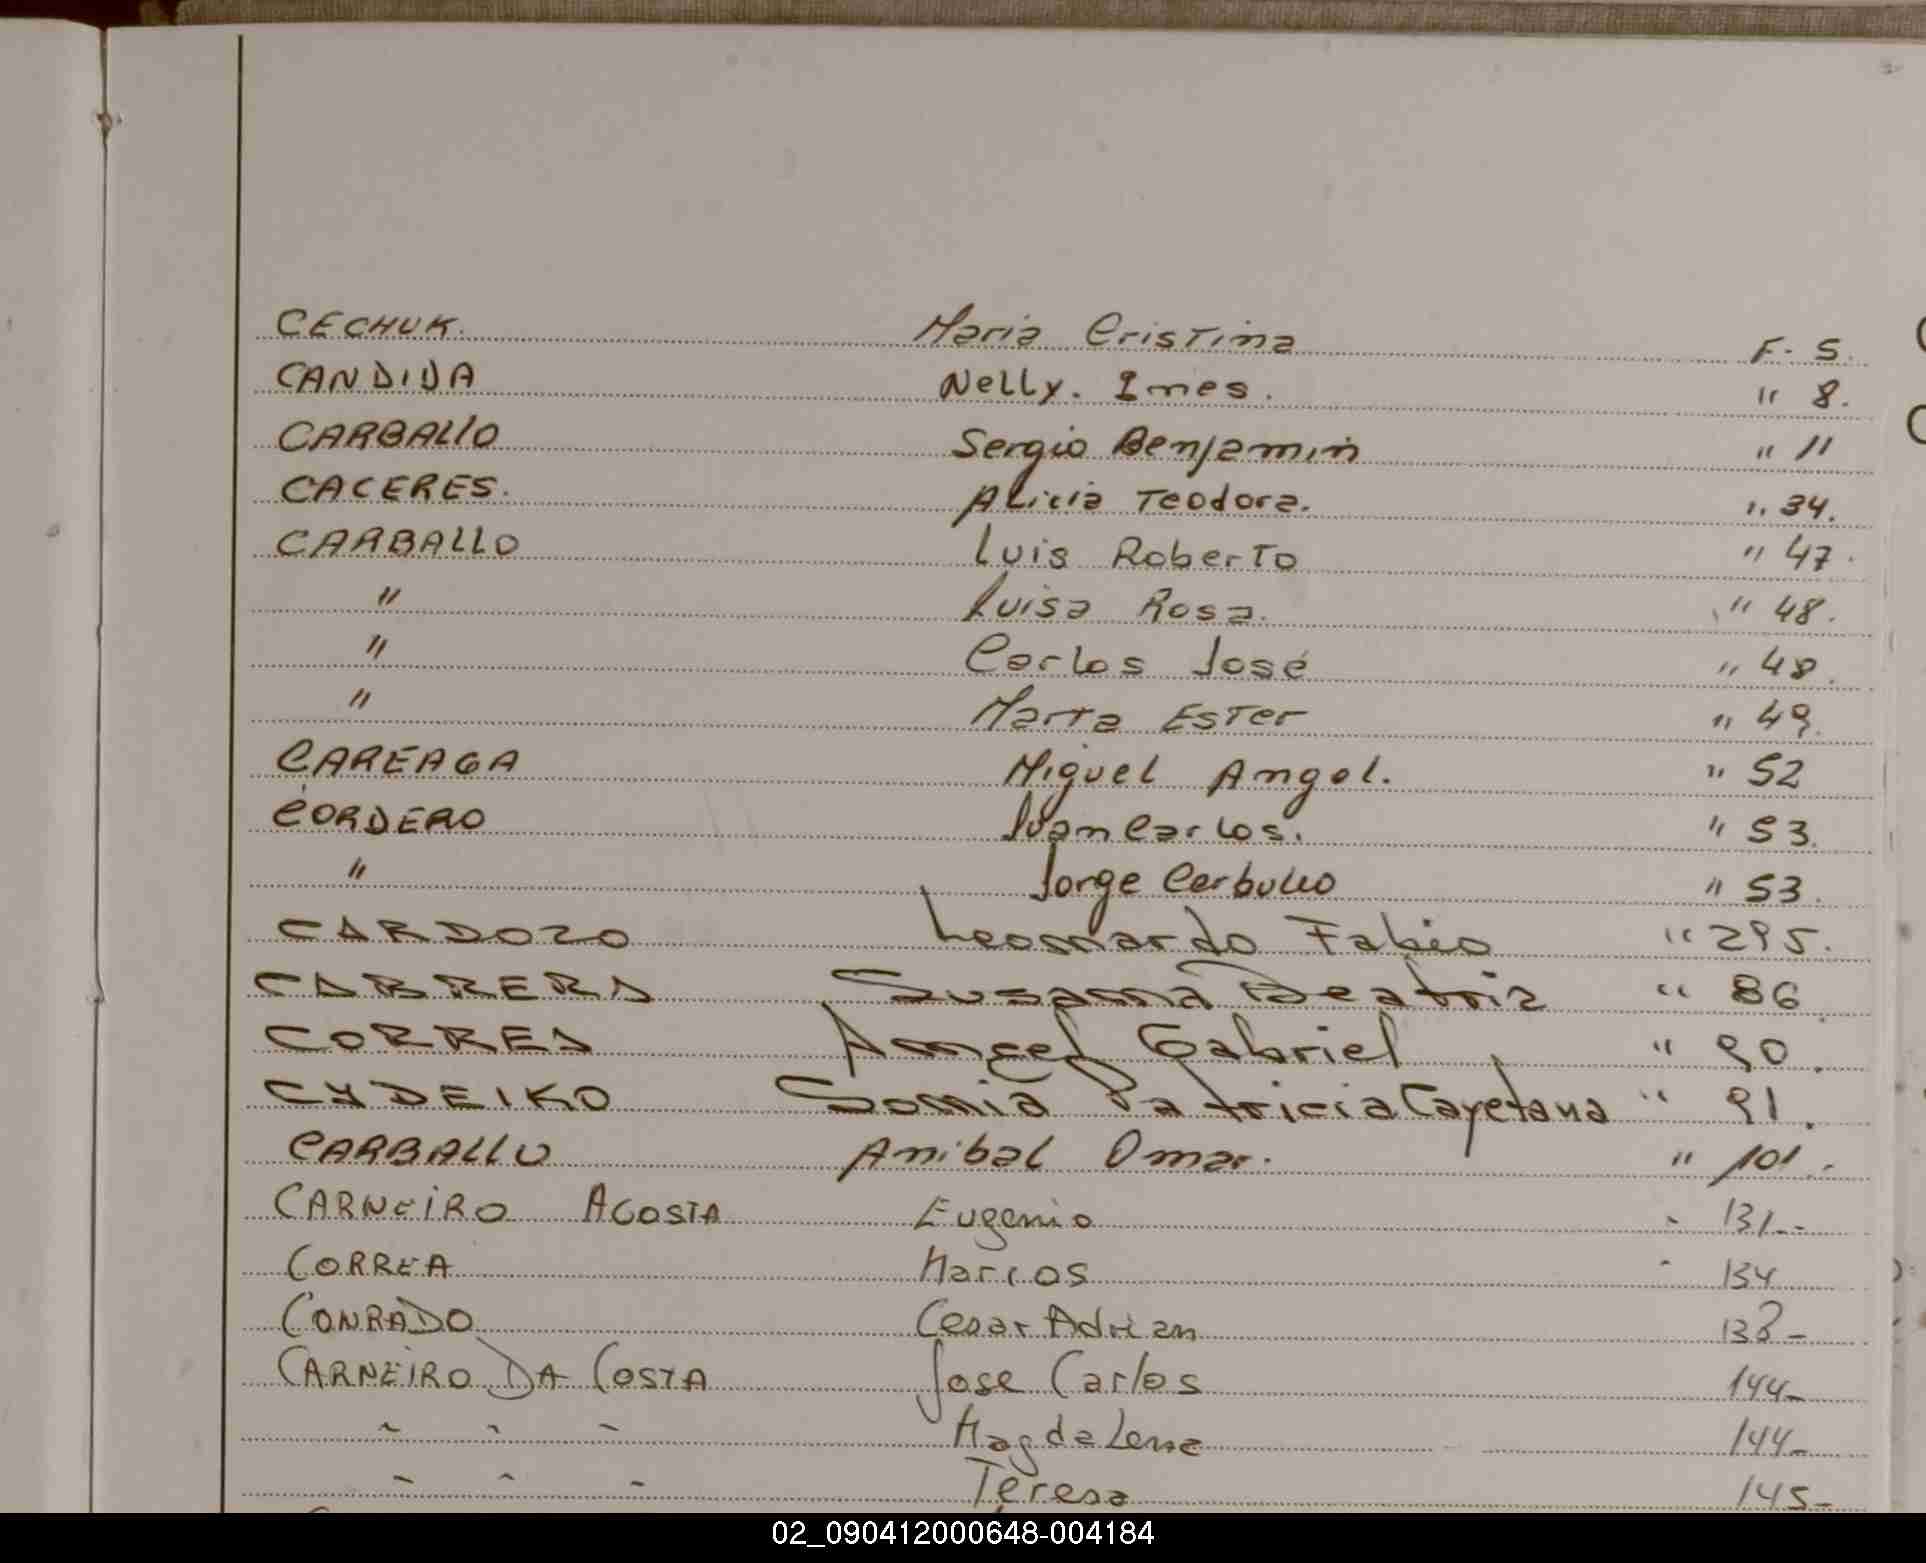 CECHUK. Maria Cristina F. 5.
CANDIDA Nelly. Ines. " 8.
CARBALLO Sergio Benjamin " 11
CACERES. Alicia Teodora. " 34.
CARBALLO Luis Roberto " 47.
" Luisa Rosa. " 48.
" Carlos José " 48.
" Marta Ester " 49.
CAREAGA Miguel Angel. " 52
CORDERO Juan Carlos. " 53.
" Jorge " 53.
CARDOZO Leonardo Fabio " 295.
CABRERA Susana Beatriz " 86
CORREA Angel Gabriel " 90.
CYDEIKO Sonia Patricia Cayetana " 91.
CARBALLO Anibal Omar. " 101.
CARNEIRO ACOSTA Eugenio " 131.-
CORREA Marcos " 134
CONRADO Cesar Adrian 138-
CARNEIRO DA COSTA Jose Carlos 144-
" " " Magdalena 144-
" " " Teresa 145-
02_090412000648-004184